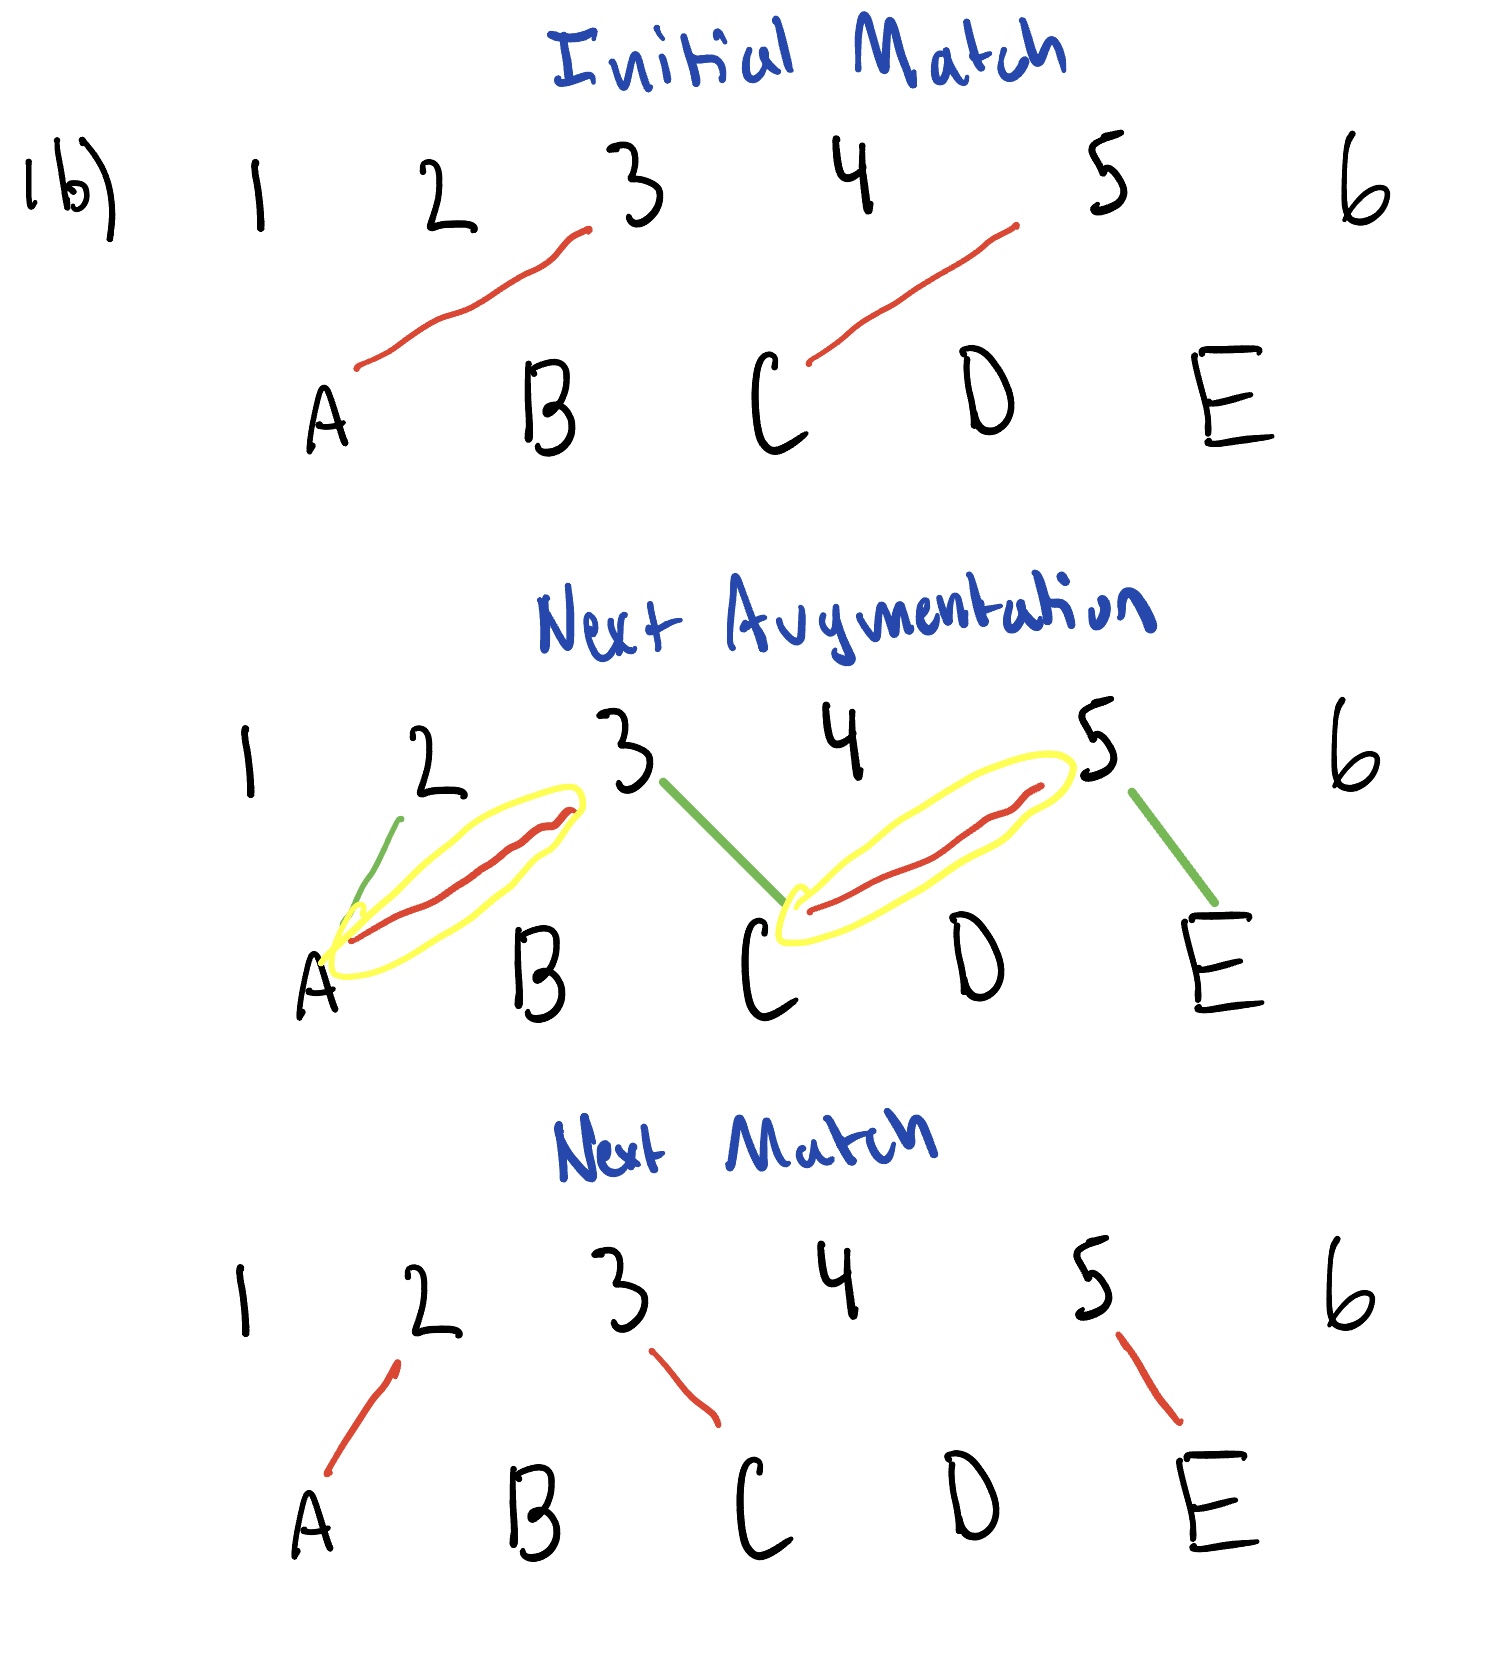 Initial Match
1b) 1 2 3 4 5 6
A B C D E
Next Augmentation
1 2 3 4 5 6
A B C D E
Next Match
1 2 3 4 5 6
A B C D E